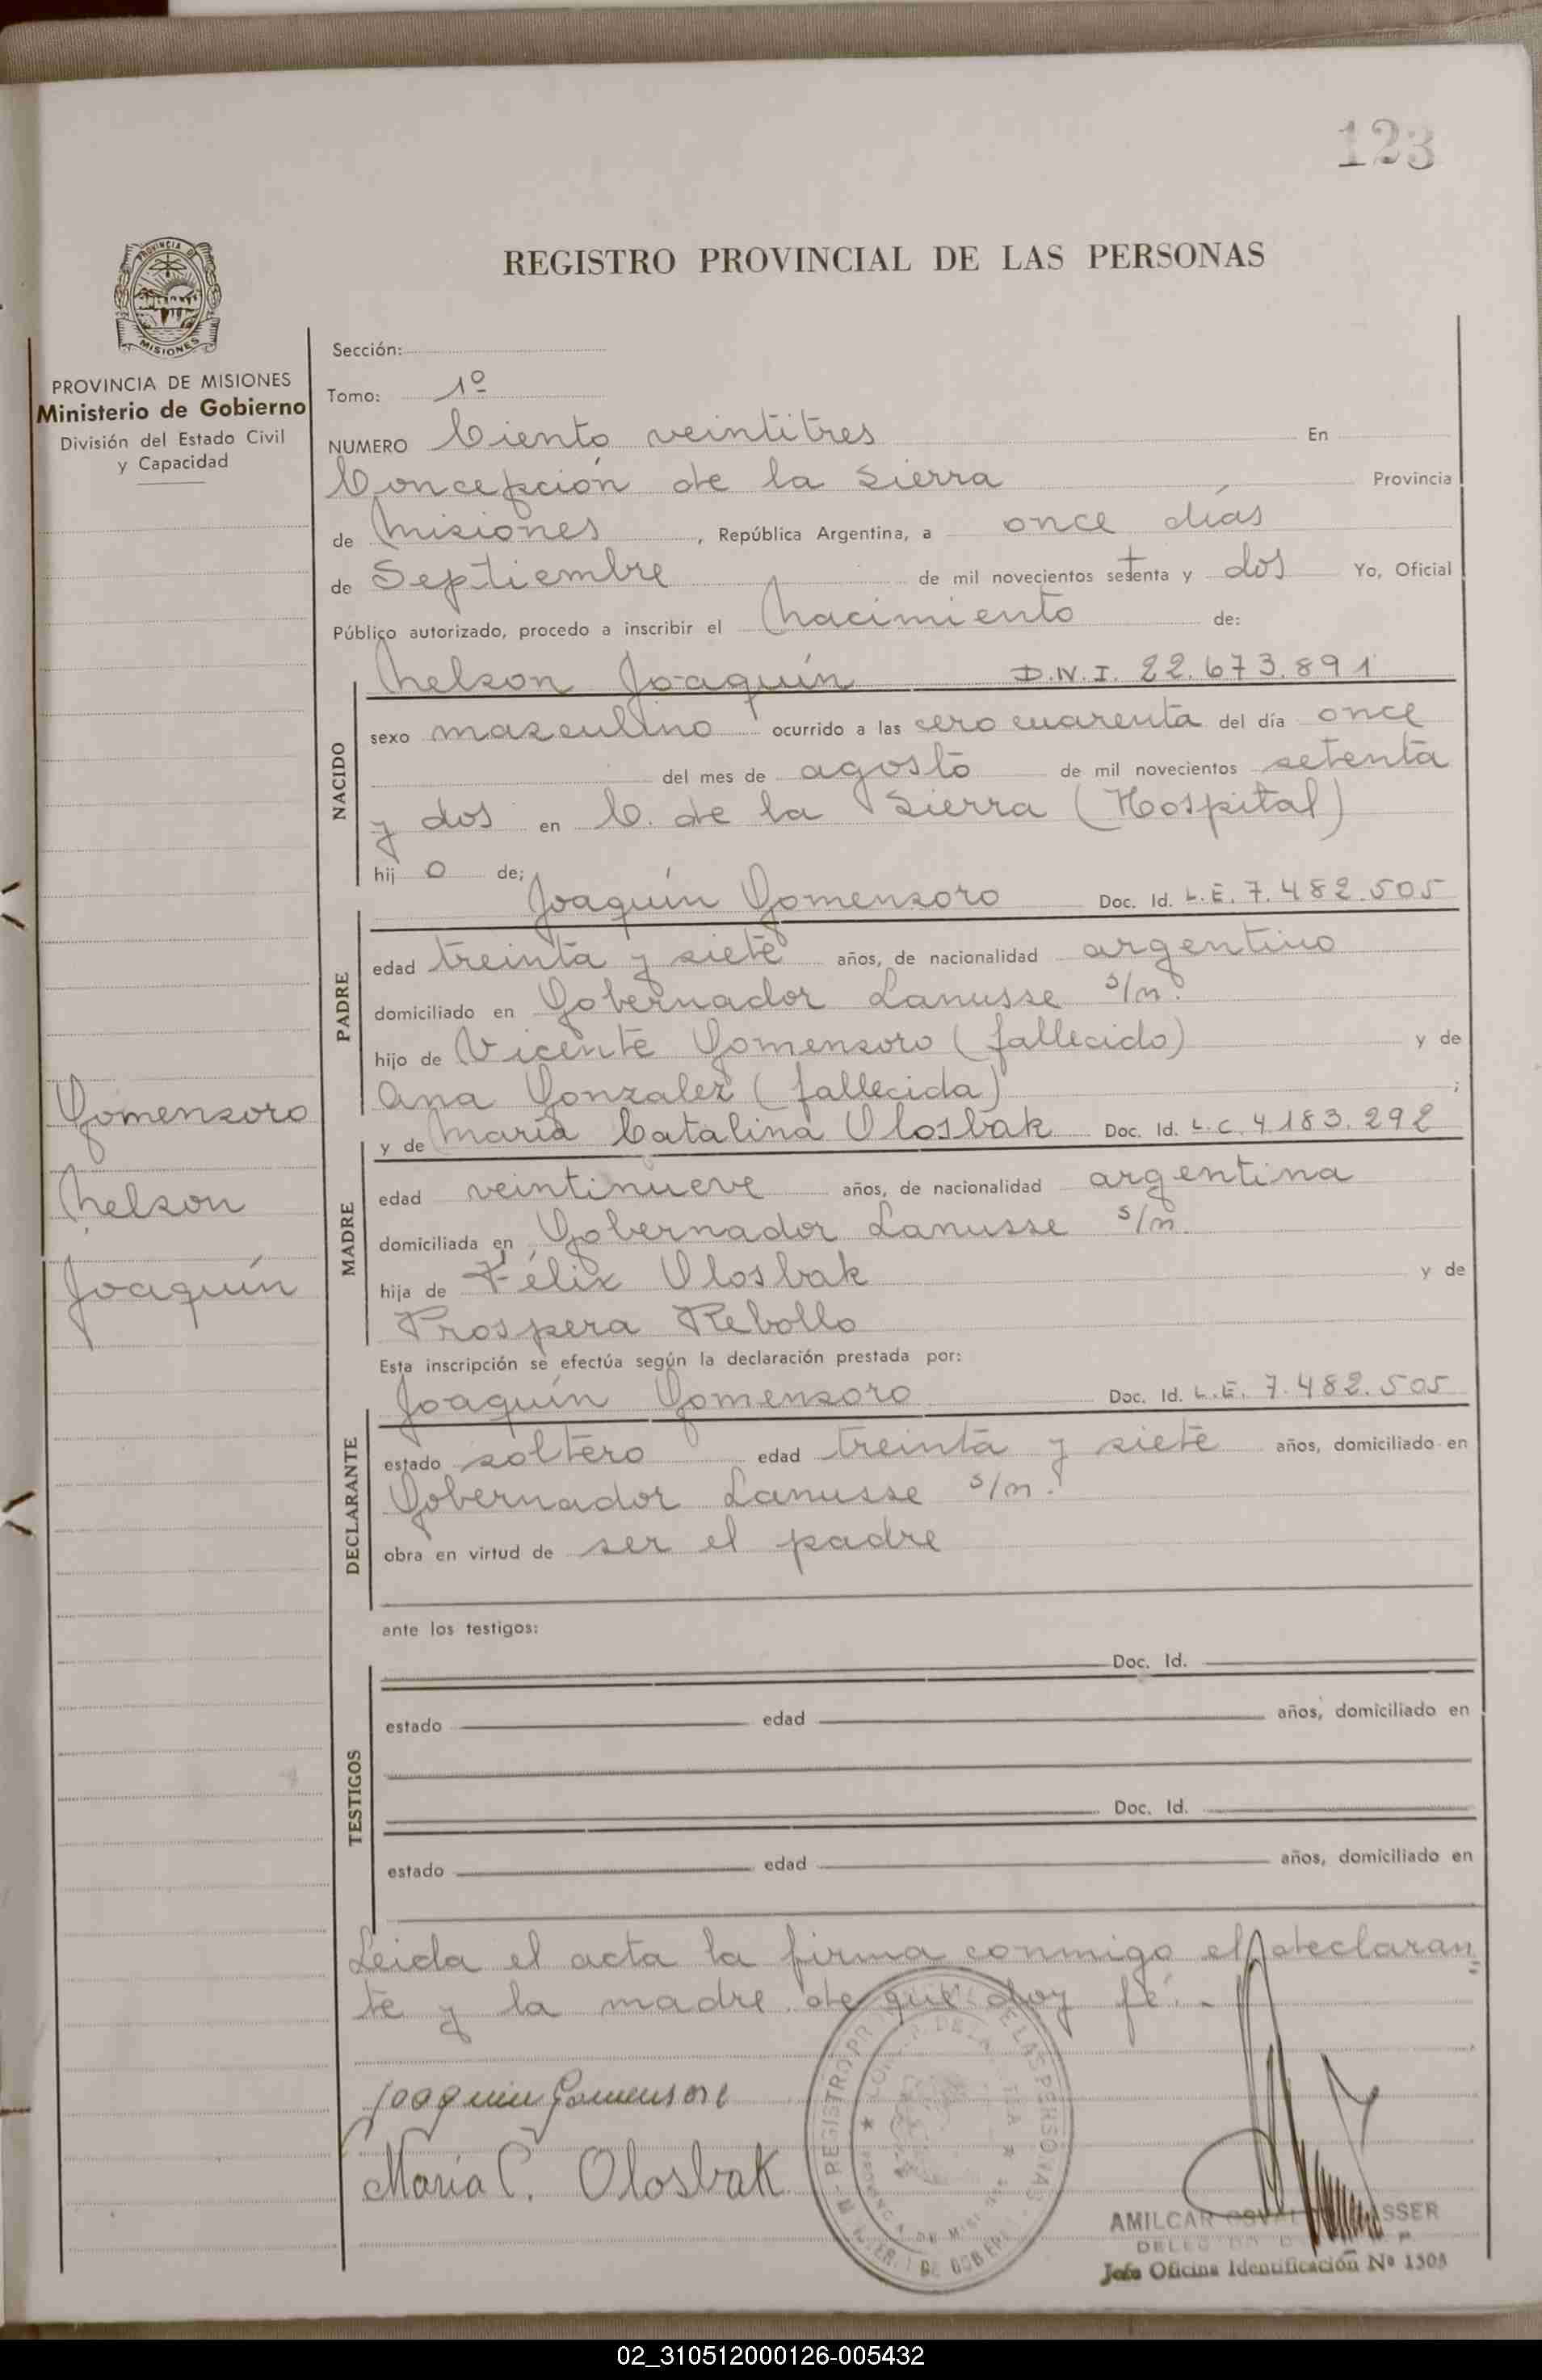 123
REGISTRO PROVINCIAL DE LAS PERSONAS
PROVINCIA DE MISIONES
PROVINCIA DE MISIONES
Ministerio de Gobierno
División del Estado Civil
y Capacidad
Gomensoro
Nelson
Joaquín
Sección:
Tomo: 1º
NUMERO Ciento veintitres En
Concepción de la Sierra Provincia
de Misiones, República Argentina, a once días
de Septiembre de mil novecientos setenta y dos Yo, Oficial
Público autorizado, procedo a inscribir el Nacimiento de:
Nelson Joaquín D.N.I. 22.673.891
NACIDO
sexo masculino ocurrido a las cero cuarenta del día once
del mes de agosto de mil novecientos setenta
y dos en C. de la Sierra (Hospital)
hij o de;
Joaquín Gomensoro Doc. Id. L.E. 7.482.505
PADRE
edad treinta y siete años, de nacionalidad argentino
domiciliado en Gobernador Lanusse s/n.
hijo de Vicente Gomensoro (fallecido) y de
Ana Gonzalez (fallecida) ;
y de María Catalina Olosbak Doc. Id. L.C. 4.183.292
MADRE
edad veintinueve años, de nacionalidad argentina
domiciliada en Gobernador Lanusse s/n.
hija de Félix Olosbak y de
Prospera Rebollo
Esta inscripción se efectúa según la declaración prestada por:
Joaquín Gomensoro Doc. Id. L.E. 7.482.505
DECLARANTE
estado soltero edad treinta y siete años, domiciliado en
Gobernador Lanusse s/n.
obra en virtud de ser el padre
ante los testigos:
Doc. Id.
TESTIGOS
estado edad años, domiciliado en
Doc. Id.
estado edad años, domiciliado en
Leida el acta la firma conmigo el declaran=
te y la madre de que doy fé.-
Joaquin Gomensoro
María C. Olosbak
REGISTRO DE LAS PERSONAS
AMILCAR
Jefe Oficina Identificación Nº 1505
02_310512000126-005432